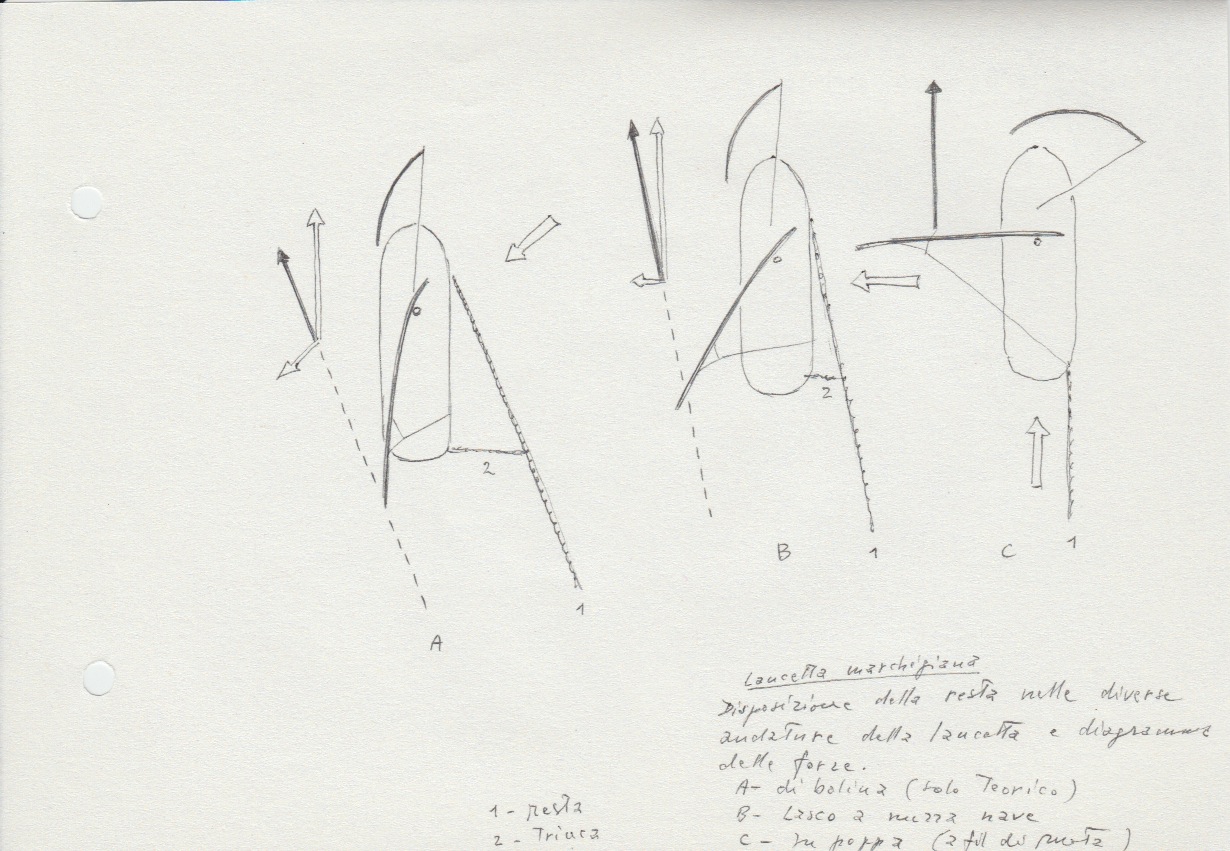 2
2
A
B
1
C
1
1
Lancetta marchigiana
Disposizione della resta nelle diverse
andature della lancetta e diagramma
delle forze.
A- di bolina (solo Teorico)
B- Lasco a mezza nave
C- in poppa (a fil di ruota)
1- resta
2- Triuca